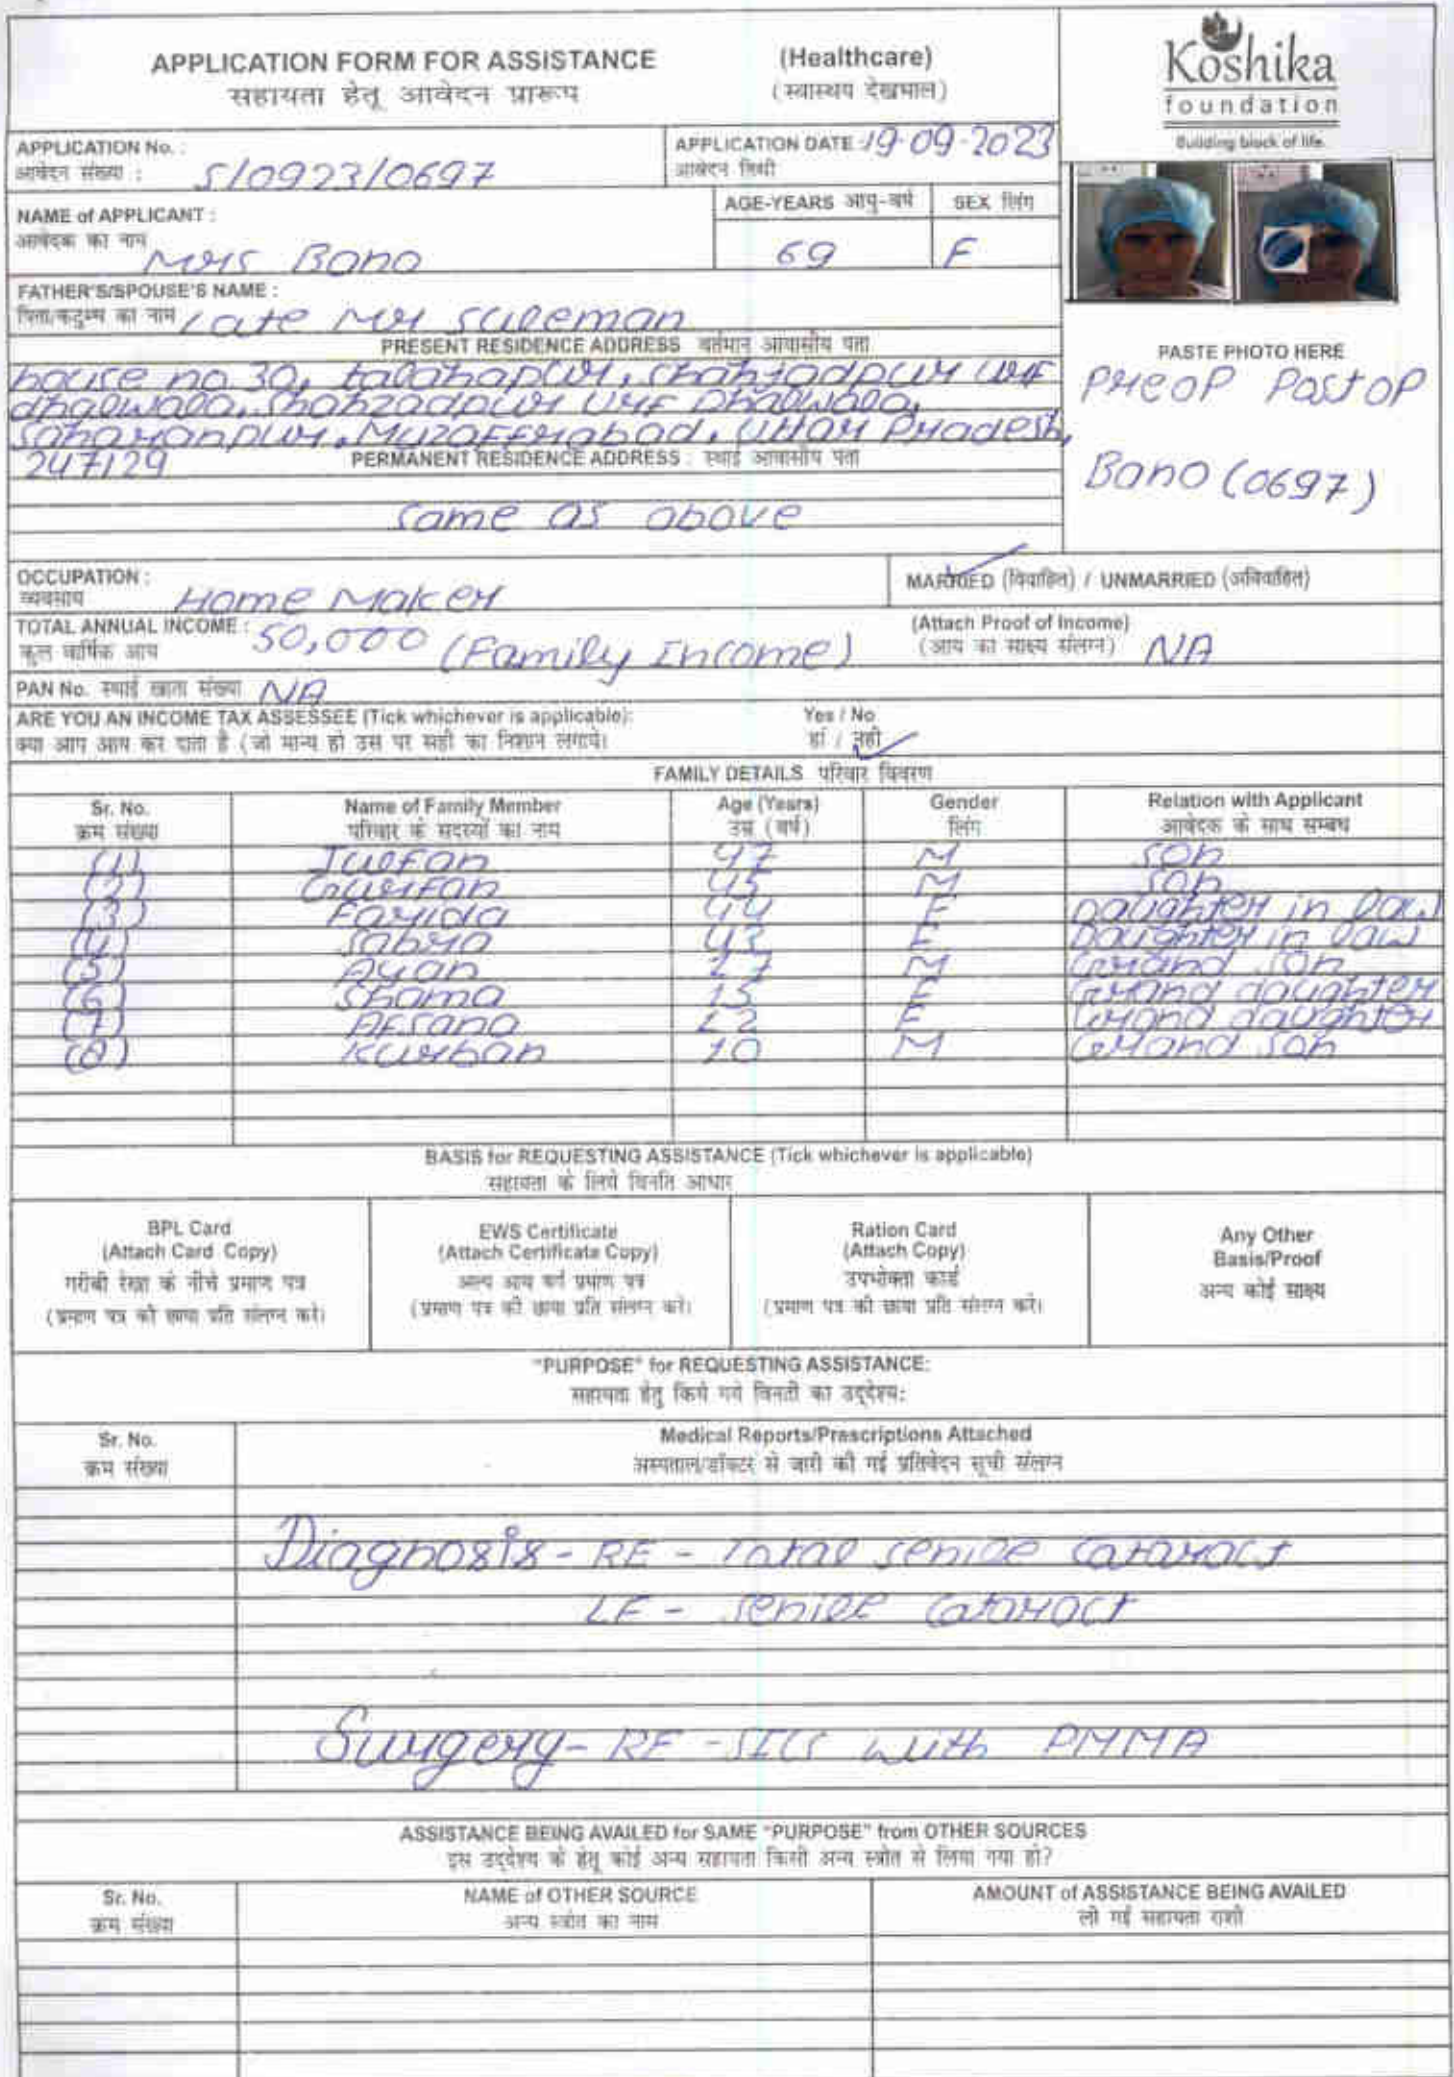 APPLICATION FORM FOR ASSISTANCE (Healthcare)
सहायता हेतू आवेदन प्रारूप (स्वास्थय देखभाल)
Koshika
foundation
Building block of life.
APPLICATION No. : S/0923/0697
आवेदन संख्या :
APPLICATION DATE : 19-09-2023
आवेदन तिथी
NAME of APPLICANT :
आवेदक का नाम Mrs Bano
AGE-YEARS आयु-वर्ष SEX लिंग
69 F
FATHER'S/SPOUSE'S NAME :
पिता/कटुम्ब का नाम Late Mr Suleman
PRESENT RESIDENCE ADDRESS वर्तमान आवासीय पता
house no 30, talahapur, Shahzadpur Urf
dhalwala, Shahzadpur Urf Dhalwala,
Saharanpur, Muzaffrabad, Uttar Pradesh,
247129
PERMANENT RESIDENCE ADDRESS : स्थाई आवासीय पता
same as above
PASTE PHOTO HERE
PreOP PostOP
Bano (0697)
OCCUPATION :
व्यवसाय Home Maker
MARRIED (विवाहित) / UNMARRIED (अविवाहित)
TOTAL ANNUAL INCOME : 50,000 (Family Income)
कुल वार्षिक आय
(Attach Proof of Income)
(आय का साक्ष्य संलग्न) NA
PAN No. स्थाई खाता संख्या NA
ARE YOU AN INCOME TAX ASSESSEE (Tick whichever is applicable): Yes / No
क्या आप आय कर दाता है (जो मान्य हो उस पर सही का निशान लगाये। हां / नहीं
FAMILY DETAILS परिवार विवरण
Sr. No. Name of Family Member Age (Years) Gender Relation with Applicant
क्रम संख्या परिवार के सदस्यों का नाम उम्र (वर्ष) लिंग आवेदक के साथ सम्बंध
(1) Julfan 47 M Son
(2) Gurfan 45 M Son
(3) Farida 44 F Daughter in law
(4) Sabra 42 F Daughter in law
(5) Ayan 17 M Grand son
(6) Shama 15 F Grand daughter
(7) Afsana 12 F Grand daughter
(8) Kurban 10 M Grand son
BASIS for REQUESTING ASSISTANCE (Tick whichever is applicable)
सहायता के लिये विनति आधार
BPL Card
(Attach Card Copy)
गरीबी रेखा के नीचे प्रमाण पत्र
(प्रमाण पत्र की छाया प्रति संलग्न करें।
EWS Certificate
(Attach Certificate Copy)
अल्प आय वर्ग प्रमाण पत्र
(प्रमाण पत्र की छाया प्रति संलग्न करें।
Ration Card
(Attach Copy)
उपभोक्ता कार्ड
(प्रमाण पत्र की छाया प्रति संलग्न करें।
Any Other
Basis/Proof
अन्य कोई साक्ष्य
"PURPOSE" for REQUESTING ASSISTANCE:
सहायता हेतु किये गये विनती का उद्देश्य:
Sr. No. Medical Reports/Prescriptions Attached
क्रम संख्या अस्पताल/डॉक्टर से जारी की गई प्रतिवेदन सूची संलग्न
Diagnosis - RE - Total senile cataract
LE - senile cataract
Surgery - RE - SICS with PMMA
ASSISTANCE BEING AVAILED for SAME "PURPOSE" from OTHER SOURCES
इस उद्देश्य के हेतू कोई अन्य सहायता किसी अन्य स्त्रोत से लिया गया हो?
Sr. No. NAME of OTHER SOURCE AMOUNT of ASSISTANCE BEING AVAILED
क्रम संख्या अन्य स्त्रोत का नाम ली गई सहायता राशी